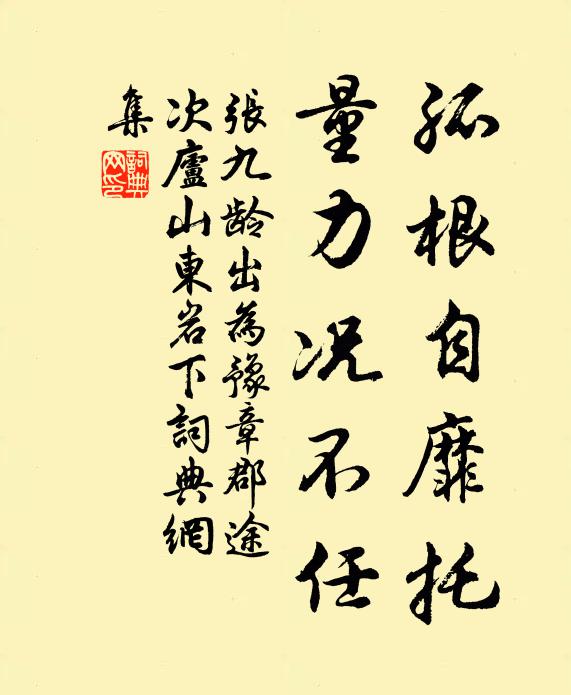 孤根自靡托
量力况不任
張九龄出為豫章郡途
次廬山東岩下詞典網
集
詞典
网印